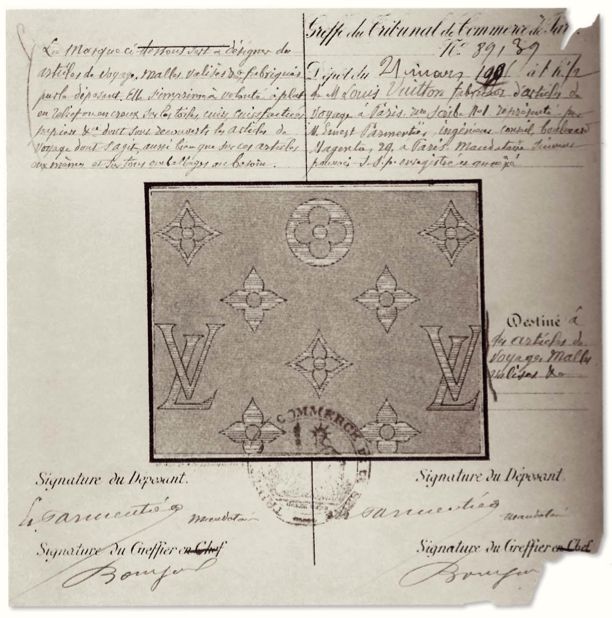 La Marque ci dessous sert à désigner des
articles de voyage, malles valises &a fabriqués
par le déposant. Elle s'imprime à volonté à plat
en relief ou en creux sur les toiles, cuirs, cuirs factices
papiers &a dont sont recouverts les articles de
voyage dont s'agit, aussi bien que sur ces articles
eux mêmes et sur tous emballages au besoin.
Greffe du Tribunal de Commerce de
No 89,139
Dépôt du 21 mars à
de M Louis Vuitton fabricant d'articles de
Voyage à Paris, rue Scribe No 1 représenté par
M Ernest Parmentier, Ingénieur conseil, boulevard
Magenta, 29, à Paris Mandataire suivant
pouvoir S.S.p. enregistré
LV
LV
Destiné à
des articles de
Voyage Malles
valises &a
COMMERCE DE LA
Signature du Déposant.
E. Parmentier
Mandataire
Signature du Greffier en Chef
Signature du Déposant.
Parmentier
Mandataire
Signature du Greffier en Chef